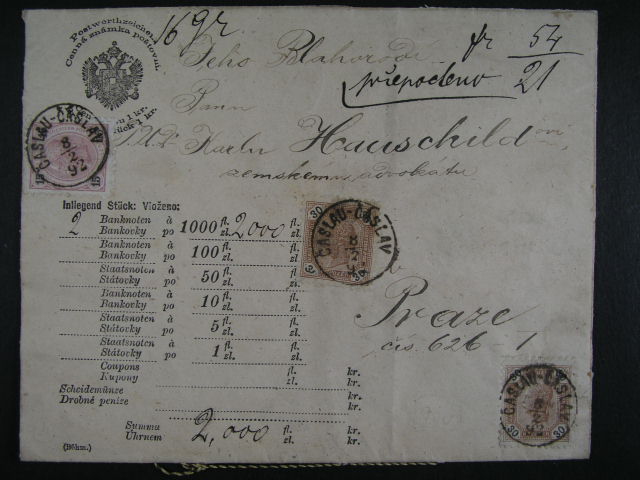 Postwerthzeichen
Cenná známka poštovní
1 kr.
1 kr.
54
21
přepočteno
Jeho Blahorodí
Pann
J.U.D. Karlu Hauschildovi
zemskému advokátu
v
Praze
čís. 626 - I
CASLAU-ČÁSLAV
8/2
92
15
Inliegend Stück: Vloženo:
2 Banknoten à
Bankovky po 1000 fl. zl. 2000 fl. zl.
Banknoten à
Bankovky po 100 fl. zl. fl. zl.
Staatsnoten à
Státovky po 50 fl. zl. fl. zl.
Banknoten à
Bankovky po 10 fl. zl. fl. zl.
Staatsnoten à
Státovky po 5 fl. zl. fl. zl.
Staatsnoten à
Státovky po 1 fl. zl. fl. zl.
Coupons fl. kr.
Kupony zl. kr.
Scheidemünze fl. kr.
Drobné peníze zl. kr.
Summa
Úhrnem 2,000 fl. zl. kr. kr.
(Böhm.)
30
CASLAU-ČÁSLAV
30
30
CASLAU-ČÁSLAV
30 30